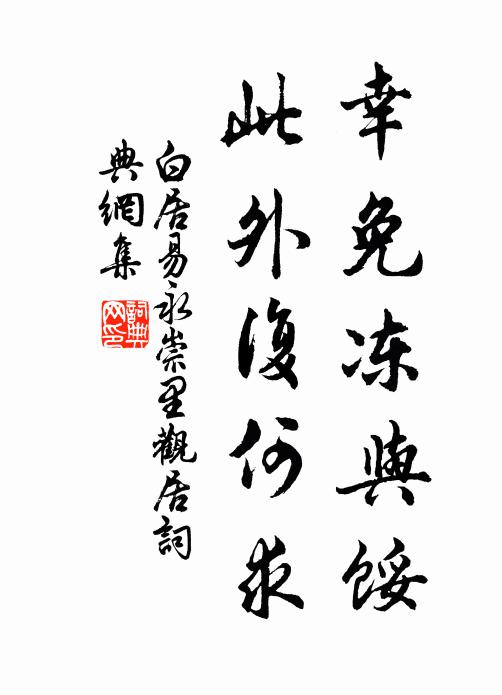 幸免冻與餒
此外復何求
白居易永崇里觀居詞
典網集
詞典網印